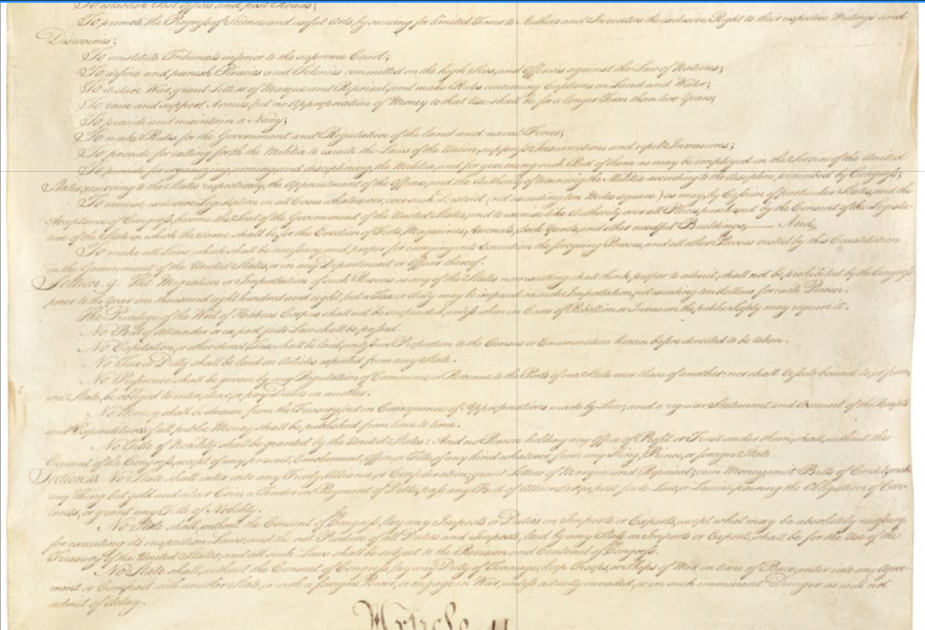 To establish Post Offices and post Roads;
To promote the Progress of Science and useful Arts, by securing for limited Times to Authors and Inventors the exclusive Right to their respective Writings and
Discoveries;
To constitute Tribunals inferior to the supreme Court;
To define and punish Piracies and Felonies committed on the high Seas, and Offences against the Law of Nations;
To declare War, grant Letters of Marque and Reprisal, and make Rules concerning Captures on Land and Water;
To raise and support Armies, but no Appropriation of Money to that Use shall be for a longer Term than two Years;
To provide and maintain a Navy;
To make Rules for the Government and Regulation of the land and naval Forces;
To provide for calling forth the Militia to execute the Laws of the Union, suppress Insurrections and repel Invasions;
To provide for organizing, arming, and disciplining, the Militia, and for governing such Part of them as may be employed in the Service of the United
States, reserving to the States respectively, the Appointment of the Officers, and the Authority of training the Militia according to the discipline prescribed by Congress;
To exercise exclusive Legislation in all Cases whatsoever, over such District (not exceeding ten Miles square) as may, by Cession of particular States, and the
Acceptance of Congress, become the Seat of the Government of the United States, and to exercise like Authority over all Places purchased by the Consent of the Legisla-
ture of the State in which the Same shall be, for the Erection of Forts, Magazines, Arsenals, dock-Yards, and other needful Buildings;—And
To make all Laws which shall be necessary and proper for carrying into Execution the foregoing Powers, and all other Powers vested by this Constitution
in the Government of the United States, or in any Department or Officer thereof.
Section. 9. The Migration or Importation of such Persons as any of the States now existing shall think proper to admit, shall not be prohibited by the Congress
prior to the Year one thousand eight hundred and eight, but a Tax or duty may be imposed on such Importation, not exceeding ten dollars for each Person.
The Privilege of the Writ of Habeas Corpus shall not be suspended, unless when in Cases of Rebellion or Invasion the public Safety may require it.
No Bill of Attainder or ex post facto Law shall be passed.
No Capitation, or other direct, Tax shall be laid, unless in Proportion to the Census or Enumeration herein before directed to be taken.
No Tax or Duty shall be laid on Articles exported from any State.
No Preference shall be given by any Regulation of Commerce or Revenue to the Ports of one State over those of another: nor shall Vessels bound to, or from,
one State, be obliged to enter, clear, or pay Duties in another.
No Money shall be drawn from the Treasury, but in Consequence of Appropriations made by Law; and a regular Statement and Account of the Receipts
and Expenditures of all public Money shall be published from time to time.
No Title of Nobility shall be granted by the United States: And no Person holding any Office of Profit or Trust under them, shall, without the
Consent of the Congress, accept of any present, Emolument, Office, or Title, of any kind whatever, from any King, Prince, or foreign State.
Section. 10. No State shall enter into any Treaty, Alliance, or Confederation; grant Letters of Marque and Reprisal; coin Money; emit Bills of Credit; make
any Thing but gold and silver Coin a Tender in Payment of Debts; pass any Bill of Attainder, ex post facto Law, or Law impairing the Obligation of Con-
tracts, or grant any Title of Nobility.
No State shall, without the Consent of Congress, lay any Imposts or Duties on Imports or Exports, except what may be absolutely necessary
for executing its inspection Laws: and the net Produce of all Duties and Imposts, laid by any State on Imports or Exports, shall be for the Use of the
Treasury of the United States; and all such Laws shall be subject to the Revision and Controul of Congress.
No State shall, without the Consent of Congress, lay any Duty of Tonnage, keep Troops, or Ships of War in time of Peace, enter into any Agree-
ment or Compact with another State, or with a foreign Power, or engage in War, unless actually invaded, or in such imminent Danger as will not
admit of delay.
Article II